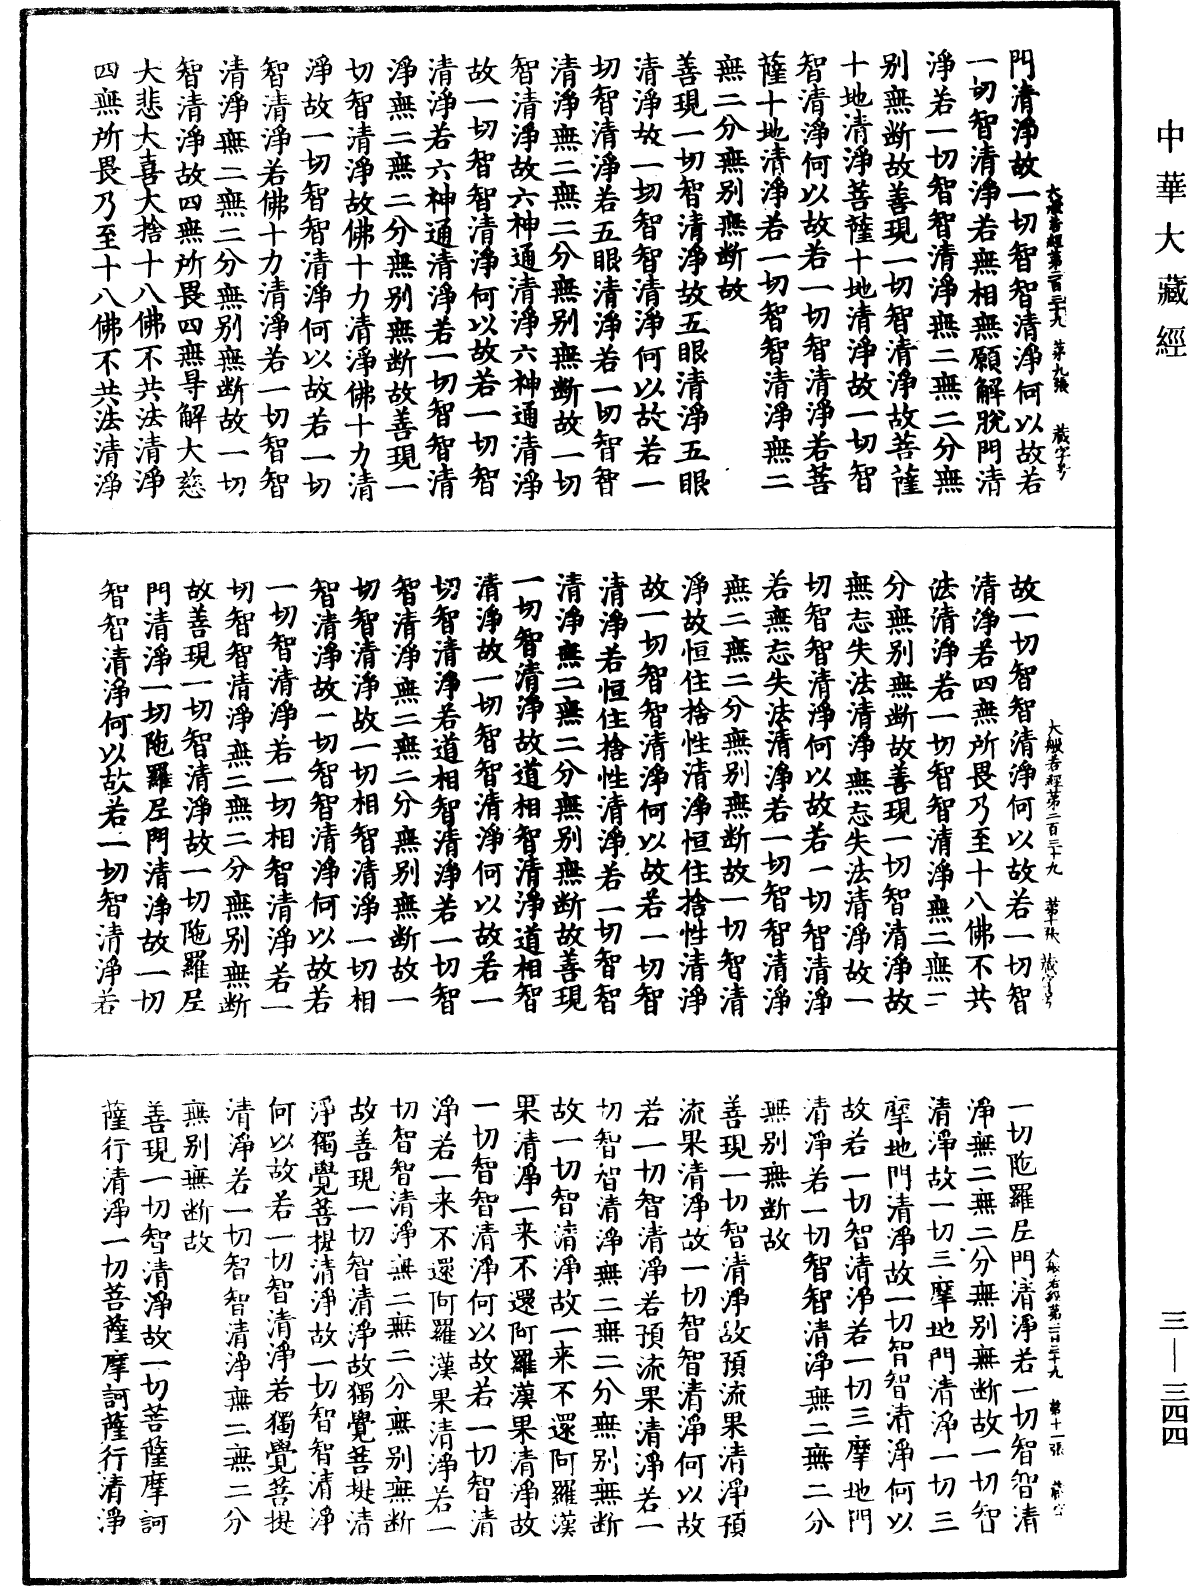 中華大藏經
門清淨故一切智智清淨何以故若
一切智清淨若無相無願解脫門清
淨若一切智智清淨無二無二分無
別無斷故善現一切智清淨故菩薩
十地清淨菩薩十地清淨故一切智
智清淨何以故若一切智清淨若菩
薩十地清淨若一切智智清淨無二
無二分無別無斷故
善現一切智清淨故五眼清淨五眼
清淨故一切智智清淨何以故若一
切智清淨若五眼清淨若一切智智
清淨無二無二分無別無斷故一切
智清淨故六神通清淨六神通清淨
故一切智智清淨何以故若一切智
清淨若六神通清淨若一切智智清
淨無二無二分無別無斷故善現一
切智清淨故佛十力清淨佛十力清
淨故一切智智清淨何以故若一切
智清淨若佛十力清淨若一切智智
清淨無二無二分無別無斷故一切
智清淨故四無所畏四無导解大慈
大悲大喜大捨十八佛不共法清淨
四無所畏乃至十八佛不共法清淨
大般若經第二百三十九 第九張 藏字号
故一切智智清淨何以故若一切智
清淨若四無所畏乃至十八佛不共
法清淨若一切智智清淨無二無二
分無別無斷故善現一切智清淨故
無忘失法清淨無忘失法清淨故一
切智智清淨何以故若一切智清淨
若無忘失法清淨若一切智智清淨
無二無二分無別無斷故一切智清
淨故恒住捨性清淨恒住捨性清淨
故一切智智清淨何以故若一切智
清淨若恒住捨性清淨若一切智智
清淨無二無二分無別無斷故善現
一切智清淨故道相智清淨道相智
清淨故一切智智清淨何以故若一
切智清淨若道相智清淨若一切智
智清淨無二無二分無別無斷故一
切智清淨故一切相智清淨一切相
智清淨故一切智智清淨何以故若
一切智清淨若一切相智清淨若一
切智智清淨無二無二分無別無斷
故善現一切智清淨故一切陁羅尼
門清淨一切陁羅尼門清淨故一切
智智清淨何以故若一切智清淨若
大般若經第二百三十九 第十張 藏字号
一切陁羅尼門清淨若一切智智清
淨無二無二分無別無斷故一切智
清淨故一切三摩地門清淨一切三
摩地門清淨故一切智智清淨何以
故若一切智清淨若一切三摩地門
清淨若一切智智清淨無二無二分
無別無斷故
善現一切智清淨故預流果清淨預
流果清淨故一切智智清淨何以故
若一切智清淨若預流果清淨若一
切智智清淨無二無二分無別無斷
故一切智清淨故一来不還阿羅漢
果清淨一来不還阿羅漢果清淨故
一切智智清淨何以故若一切智清
淨若一来不還阿羅漢果清淨若一
切智智清淨無二無二分無別無斷
故善現一切智清淨故獨覺菩提清
淨獨覺菩提清淨故一切智智清淨
何以故若一切智清淨若獨覺菩提
清淨若一切智智清淨無二無二分
無別無斷故
善現一切智清淨故一切菩薩摩訶
薩行清淨一切菩薩摩訶薩行清淨
大般若經第二百三十九 第十一張 藏字
三—三四四